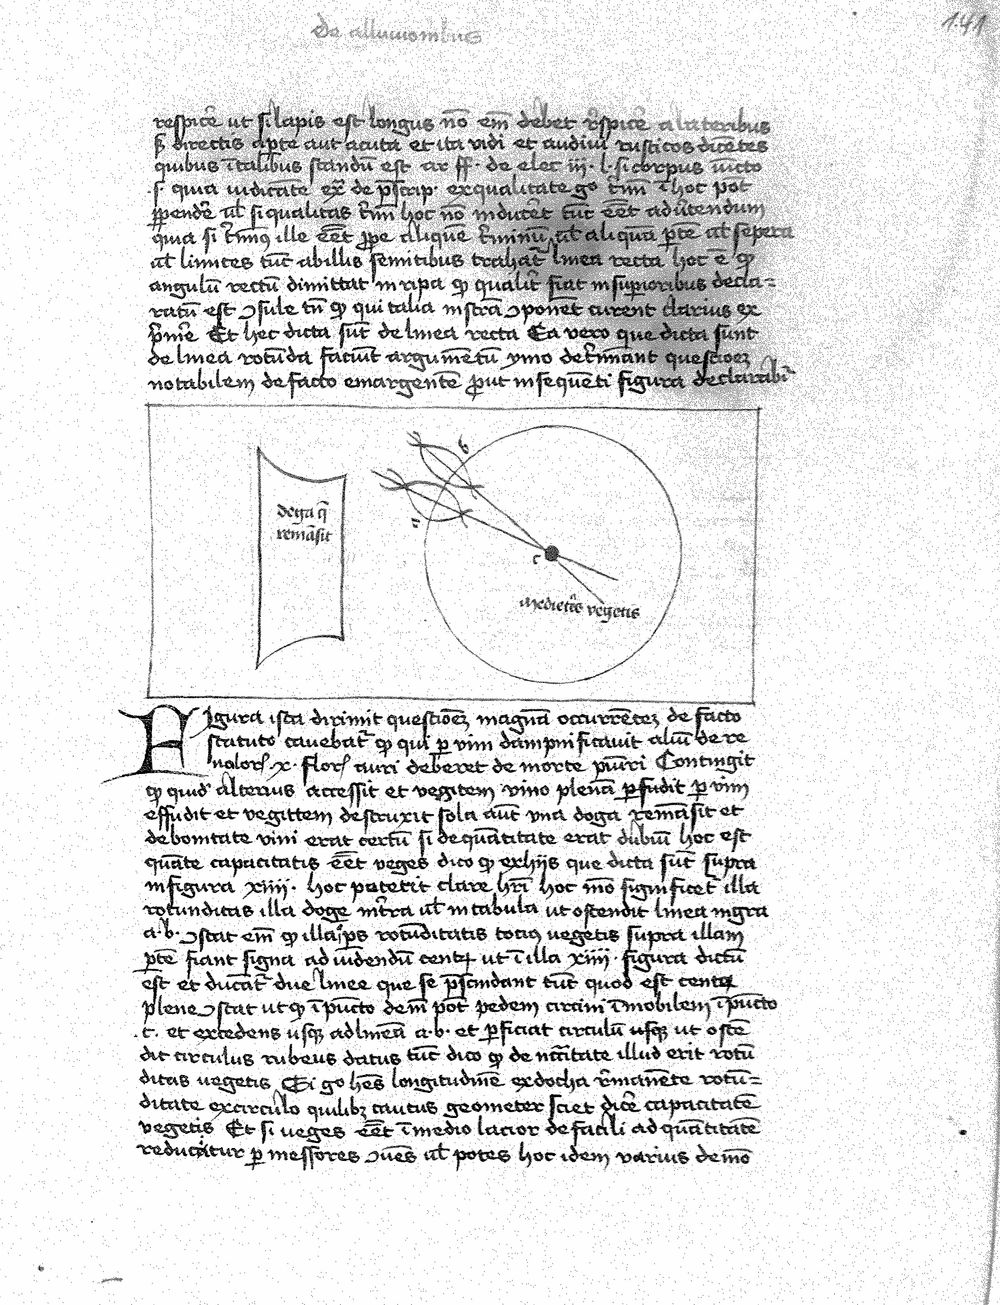 De alluuionibus
141
respicẽ ut si lapis est longus nõ em̃ debet respicẽ a lateribus
directis apte aut acuta et ita vidi et audiui rusticos dicẽtes
quibus ĩtalibus standũ est ar ff. de elec iij. l. si corpus
.s. qua iudicate de exqualitate go tm̃ ĩ hoc pot
si qualitas tm̃ hoc nõ inducẽt tũc eẽt aduẽtendum
quia si ille eẽt ꝓpe aliquẽ t̃minũ ul̃ aliquã ꝑte ul̃
ul̃ limites tũc ab illis semitibus trahat̃ linea recta hoc ẽ ꝙ
angulũ rectũ dimittat in ripa ꝙ qualit̃ fiat in suꝑioribus decla=
ratũ est ↄsule tñ ꝙ qui talia ↄponet curent clarius ex
p̃mẽ Et hec dicta sũt de linea recta Ea vero que dicta sunt
de linea rotũda faciũt argumẽtũ ymo det̃minant
notabilem de facto emargentẽ ꝓut in sequẽti figura declarabit̃
doga q̃
remãsit
b
a
c
medietas vegetis
Figura ista dirimit questionẽ magnã occurrẽtez de facto
statuto cauebat̃ ꝙ qui ꝑ vim dampnificauit aliũ de re
ualorꝭ .x. florꝭ auri deberet de morte puĩri Contingit
ꝙ quid̃ alterius accessit et vegitem vino plenã ꝑfudit ꝑ vim
effudit et vegittem destruxit sola aũt vna doga remãsit et
de bonitate vini erat certũ si de quãtitate erat dubiũ hoc est
quãte capacitatis eẽt veges dico ꝙ ex hijs que dicta sũt supra
in figura xiiij. hoc poterit clare hr̃i hoc mõ significet̃ illa
rotunditas illa doge ul̃ in tabula ut ostendit linea nigra
a.b. ↄstat em̃ ꝙ illa ip̃s rotũditatis totiꝰ vegetis supra illam
ꝑtẽ fiant signa ad iũdendũ centꝝ ut ĩ illa xiiij. figura dictũ
est et ducãt̃ due linee que se p̃scindant tũc quod est centꝝ
plene ↄstat utqꝫ ĩ pũcto dem̃ pot pedem circini ĩmobilem ĩ pũcto
.c. et excedens usqꝫ ad lineã a.b. et ꝑficiat circulũ usqꝫ ut ostẽ
dit circulus rubeus datus tũc dico ꝙ de nc̃itate illud erit rotũ
ditas uegetis Et go hẽs longitudinẽ ex docha rĩmanẽte rotũ=
ditate ex circulo quilibꝫ cautus geometer sciet dicẽ capacitatẽ
vegetis Et si ueges eẽt ĩ medio lacior de facili ad quãtitatẽ
reducitur ꝑ messores ↄues̃ ul̃ potes hoc idem varius demõ